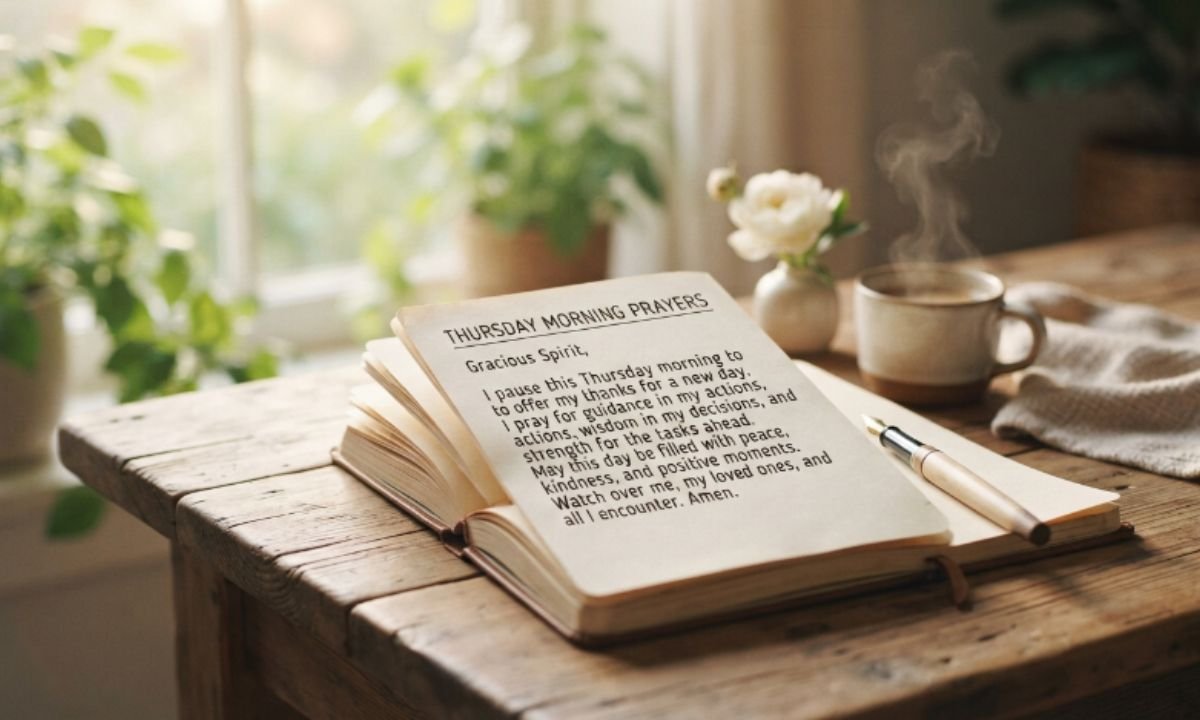 THURSDAY MORNING PRAYERS
Gracious Spirit,
I pause this Thursday morning to
to offer my thanks for a new day.
I pray for guidance in my actions,
actions, wisdom in my decisions, and
strength for the tasks ahead.
May this day be filled with peace,
kindness, and positive moments.
Watch over me, my loved ones, and
all I encounter. Amen.